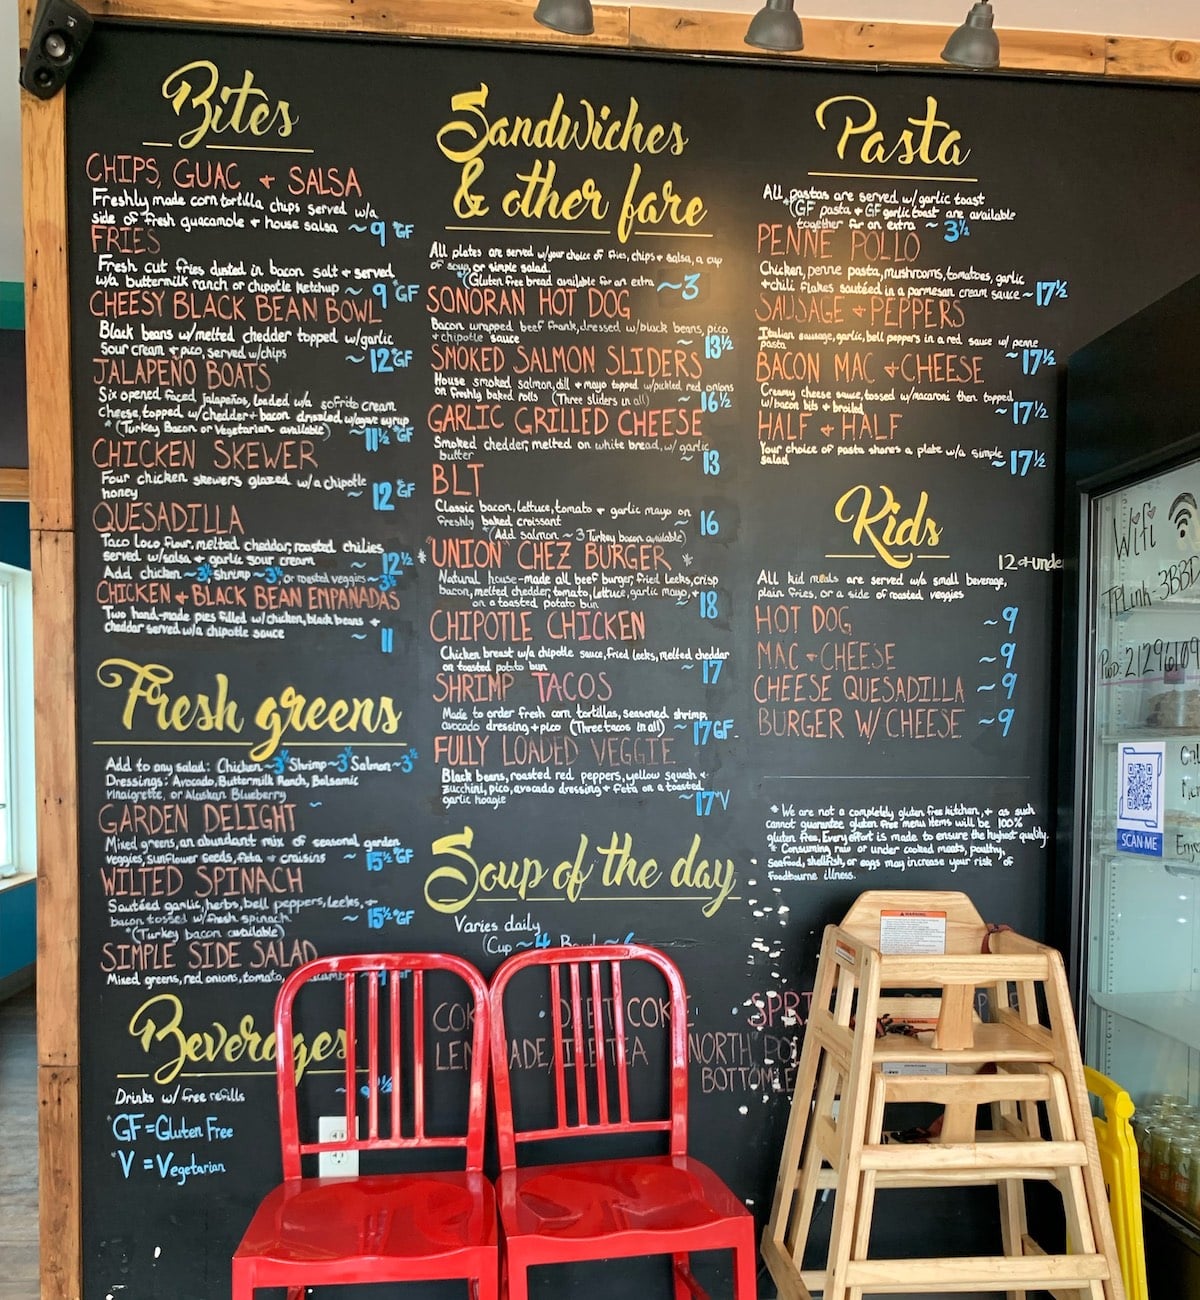 Bites
CHIPS, GUAC + SALSA
Freshly made corn tortilla chips served w/a
side of fresh guacamole + house salsa ~9 *GF
FRIES
Fresh cut fries dusted in bacon salt + served
w/a buttermilk ranch or chipotle ketchup ~ 9 *GF
CHEESY BLACK BEAN BOWL
Black beans w/melted chedder topped w/garlic
sour cream + pico, served w/chips ~12 *GF
JALAPEÑO BOATS
Six opened faced jalapeños, loaded w/a sofrito cream
cheese, topped w/chedder + bacon drizzled w/agave syrup
*(Turkey Bacon or Vegetarian available) ~11½ *GF
CHICKEN SKEWER
Four chicken skewers glazed w/a chipotle
honey ~ 12 *GF
QUESADILLA
Taco loco flour, melted cheddar, roasted chilies,
served w/salsa + garlic sour cream ~ 12½
Add chicken ~3½ Shrimp ~3½, or roasted veggies ~3½
CHICKEN + BLACK BEAN EMPANADAS
Two hand-made pies filled w/chicken, black beans +
cheddar served w/a chipotle sauce ~ 11
Fresh greens
Add to any salad: Chicken ~3½ Shrimp ~3½ Salmon ~3½
Dressings: Avocado, Buttermilk Ranch, Balsamic
Vinaigrette, or Alaskan Blueberry
GARDEN DELIGHT
Mixed greens, an abundant mix of seasonal garden
veggies, sunflower seeds, feta + craisins ~ 15½ *GF
WILTED SPINACH
Sautéed garlic, herbs, bell peppers, leeks, +
bacon tossed w/fresh spinach ~ 15½ *GF
*(Turkey bacon available)
SIMPLE SIDE SALAD
Mixed greens, red onions, tomato,
Beverages
Drinks w/ free refills
*GF = Gluten Free
*V = Vegetarian
Sandwiches
& other fare
All plates are served w/your choice of fries, chips + salsa, a cup
of soup, or simple salad.
*(Gluten free bread available for an extra ~3
SONORAN HOT DOG
Bacon wrapped beef frank, dressed w/black beans, pico
+ chipotle sauce ~ 13½
SMOKED SALMON SLIDERS
House smoked salmon, dill + mayo topped w/pickled red onions
on freshly baked rolls (Three sliders in all) ~ 16½
GARLIC GRILLED CHEESE
Smoked chedder, melted on white bread, w/ garlic
butter ~ 13
BLT
Classic bacon, lettuce, tomato + garlic mayo on
freshly baked croissant ~ 16
*(Add salmon ~ 3 Turkey bacon available)
*"UNION" CHEZ BURGER *
Natural house-made all beef burger, fried leeks, crisp
bacon, melted chedder, tomato, lettuce, garlic mayo, +
on a toasted potato bun ~ 18
CHIPOTLE CHICKEN
Chicken breast w/a chipotle sauce, fried leeks, melted cheddar
on toasted potato bun ~ 17
SHRIMP TACOS
Made to order fresh corn tortillas, seasoned shrimp,
avocado dressing + pico (Three tacos in all) ~17 GF
FULLY LOADED VEGGIE
Black beans, roasted red peppers, yellow squash +
zucchini, pico, avocado dressing + feta on a toasted
garlic hoagie ~17 *V
Soup of the day
Varies daily
(Cup ~4 Bowl ~6
DIET COKE
ICE TEA
NORTH
Pasta
All pastas are served w/garlic toast
*(GF pasta + GF garlic toast are available
together for an extra ~ 3½
PENNE POLLO
Chicken, penne pasta, mushrooms, tomatoes, garlic
+ chili flakes sautéed in a parmesan cream sauce ~17½
SAUSAGE + PEPPERS
Italian sausage, garlic, bell peppers in a red sauce w/ penne
pasta ~17½
BACON MAC + CHEESE
Creamy cheese sauce, tossed w/macaroni then topped
w/bacon bits + broiled ~17½
HALF + HALF
Your choice of pasta shares a plate w/a simple
salad ~17½
Kids
12 + under
All kid meals are served w/a small beverage,
plain fries, or a side of roasted veggies
HOT DOG ~9
MAC + CHEESE ~9
CHEESE QUESADILLA ~9
BURGER W/ CHEESE ~9
* We are not a completely gluten free kitchen, + as such
cannot guarantee gluten free menu items will be 100%
gluten free. Every effort is made to ensure the highest quality.
* Consuming raw or under cooked meats, poultry,
seafood, shellfish, or eggs may increase your risk of
foodbourne illness.
Wifi
TPLink-3BBD
Pwd: 21296109
SCAN ME
WARNING